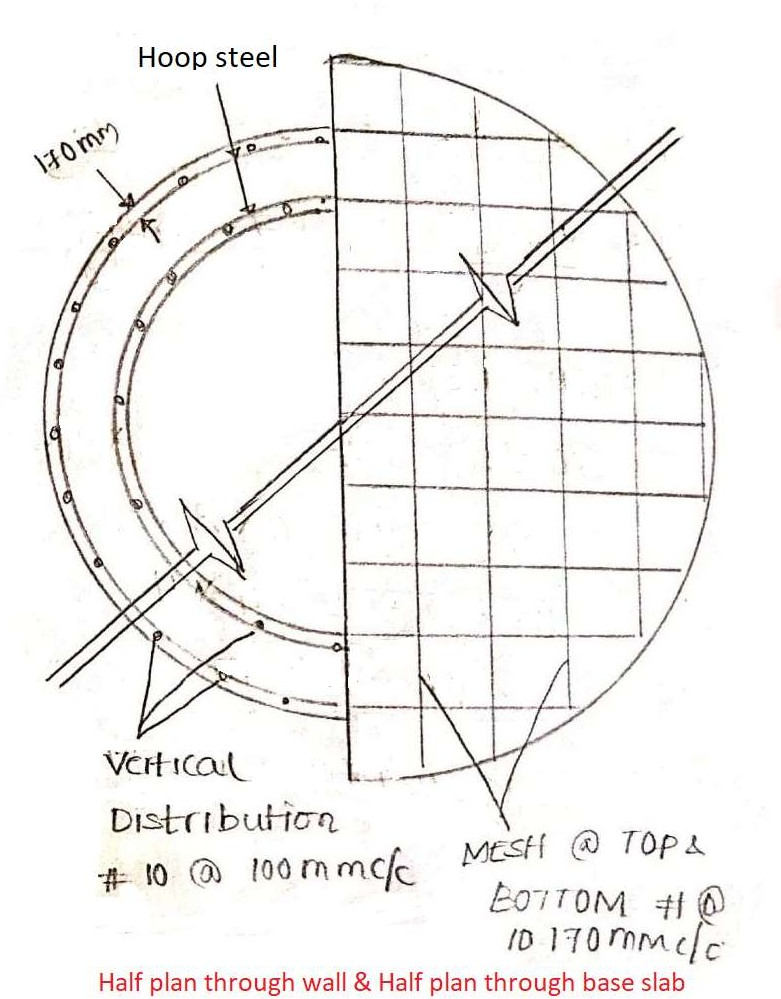 Hoop steel
170mm
Vertical
Distribution
# 10 @ 100mmc/c
MESH @ TOP &
BOTTOM #1 @
10 170mmc/c
Half plan through wall & Half plan through base slab